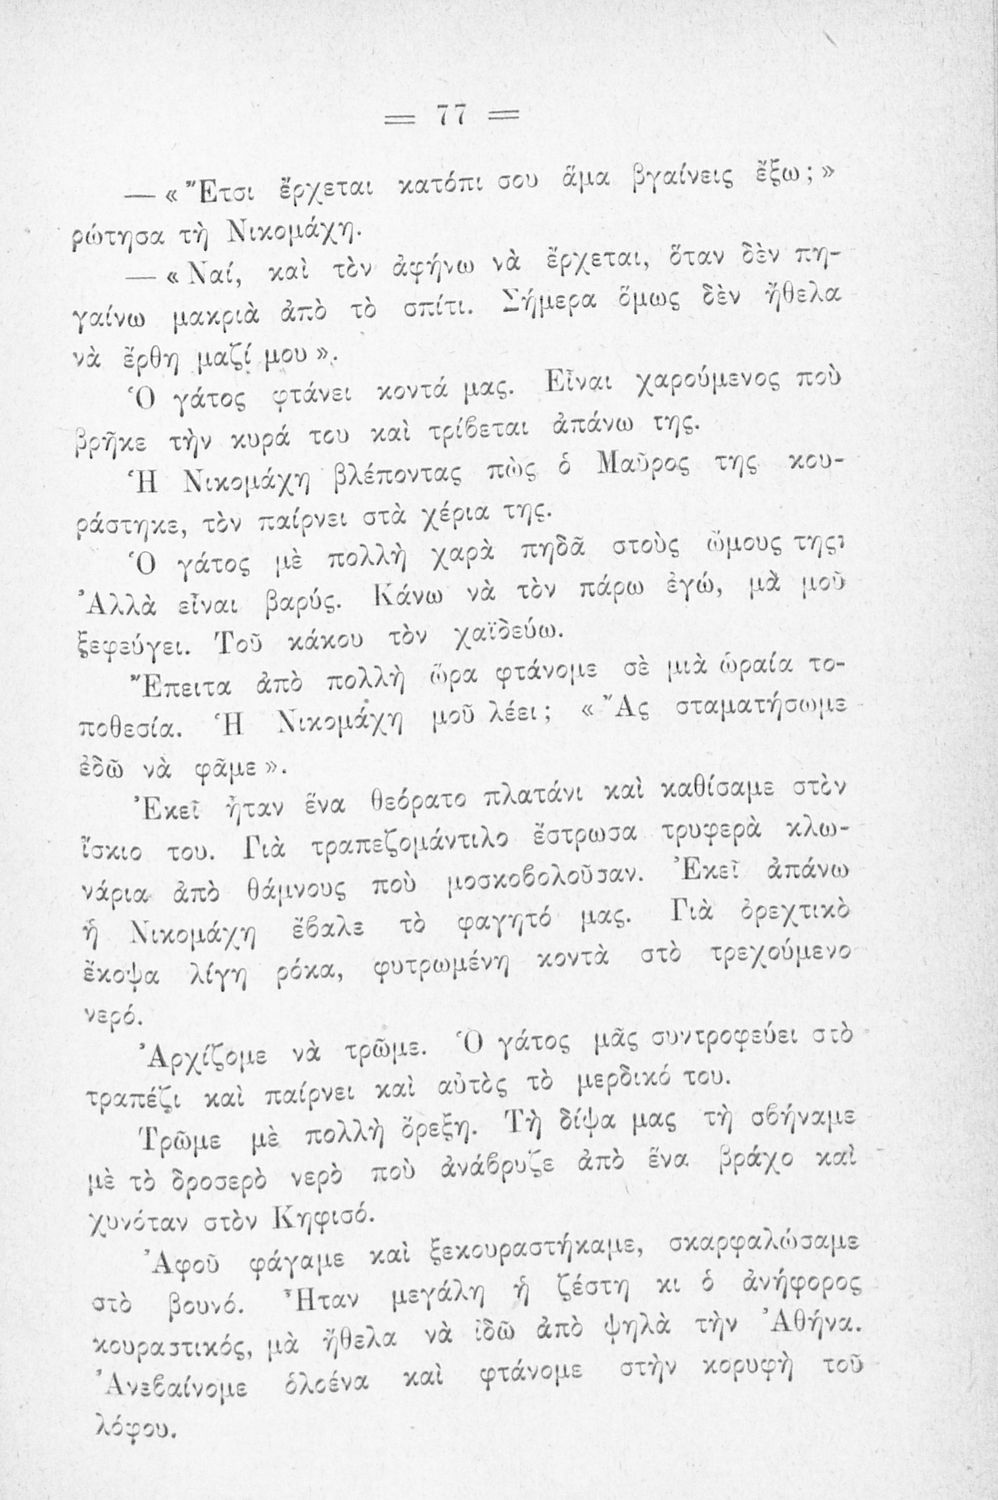 = 77 =
— « Ἔτσι ἔρχεται κατόπι σου ἅμα βγαίνεις ἔξω ; »
ρώτησα τὴ Νικομάχη.
— « Ναί, καὶ τὸν ἀφήνω νὰ ἔρχεται, ὅταν δὲν πη-
γαίνω μακριὰ ἀπὸ τὸ σπίτι. Σήμερα ὅμως δὲν ἤθελα
νὰ ἔρθη μαζί μου ».
Ὁ γάτος φτάνει κοντά μας. Εἶναι χαρούμενος ποὺ
βρῆκε τὴν κυρά του καὶ τρίβεται ἀπάνω της.
Ἡ Νικομάχη βλέποντας πὼς ὁ Μαῦρος της κου-
ράστηκε, τὸν παίρνει στὰ χέρια της.
Ὁ γάτος μὲ πολλὴ χαρὰ πηδᾶ στοὺς ὤμους της
Ἀλλὰ εἶναι βαρύς. Κάνω νὰ τὸν πάρω ἐγώ, μὰ μοῦ
ξεφεύγει. Τοῦ κάκου τὸν χαϊδεύω.
Ἔπειτα ἀπὸ πολλὴ ὥρα φτάνομε σὲ μιὰ ὡραία το-
ποθεσία. Ἡ Νικομάχη μοῦ λέει ; « Ἂς σταματήσωμε
ἐδῶ νὰ φᾶμε ».
Ἐκεῖ ἦταν ἕνα θεόρατο πλατάνι καὶ καθίσαμε στὸν
ἴσκιο του. Γιὰ τραπεζομάντιλο ἔστρωσα τρυφερὰ κλω-
νάρια ἀπὸ θάμνους ποὺ μοσκοβολοῦσαν. Ἐκεῖ ἀπάνω
ἡ Νικομάχη ἔβαλε τὸ φαγητό μας. Γιὰ ὀρεχτικὸ
ἔκοψα λίγη ρόκα, φυτρωμένη κοντὰ στὸ τρεχούμενο
νερό.
Ἀρχίζομε νὰ τρῶμε. Ὁ γάτος μᾶς συντροφεύει στὸ
τραπέζι καὶ παίρνει καὶ αὐτὸς τὸ μερδικό του.
Τρῶμε μὲ πολλὴ ὄρεξη. Τὴ δίψα μας τὴ σβήναμε
μὲ τὸ δροσερὸ νερὸ ποὺ ἀνάβρυζε ἀπὸ ἕνα βράχο καὶ
χυνόταν στὸν Κηφισό.
Ἀφοῦ φάγαμε καὶ ξεκουραστήκαμε, σκαρφαλώσαμε
στὸ βουνό. Ἦταν μεγάλη ἡ ζέστη κι ὁ ἀνήφορος
κουραστικός, μὰ ἤθελα νὰ ἰδῶ ἀπὸ ψηλὰ τὴν Ἀθήνα.
Ἀνεβαίνομε ὁλοένα καὶ φτάνομε στὴν κορυφὴ τοῦ
λόφου.